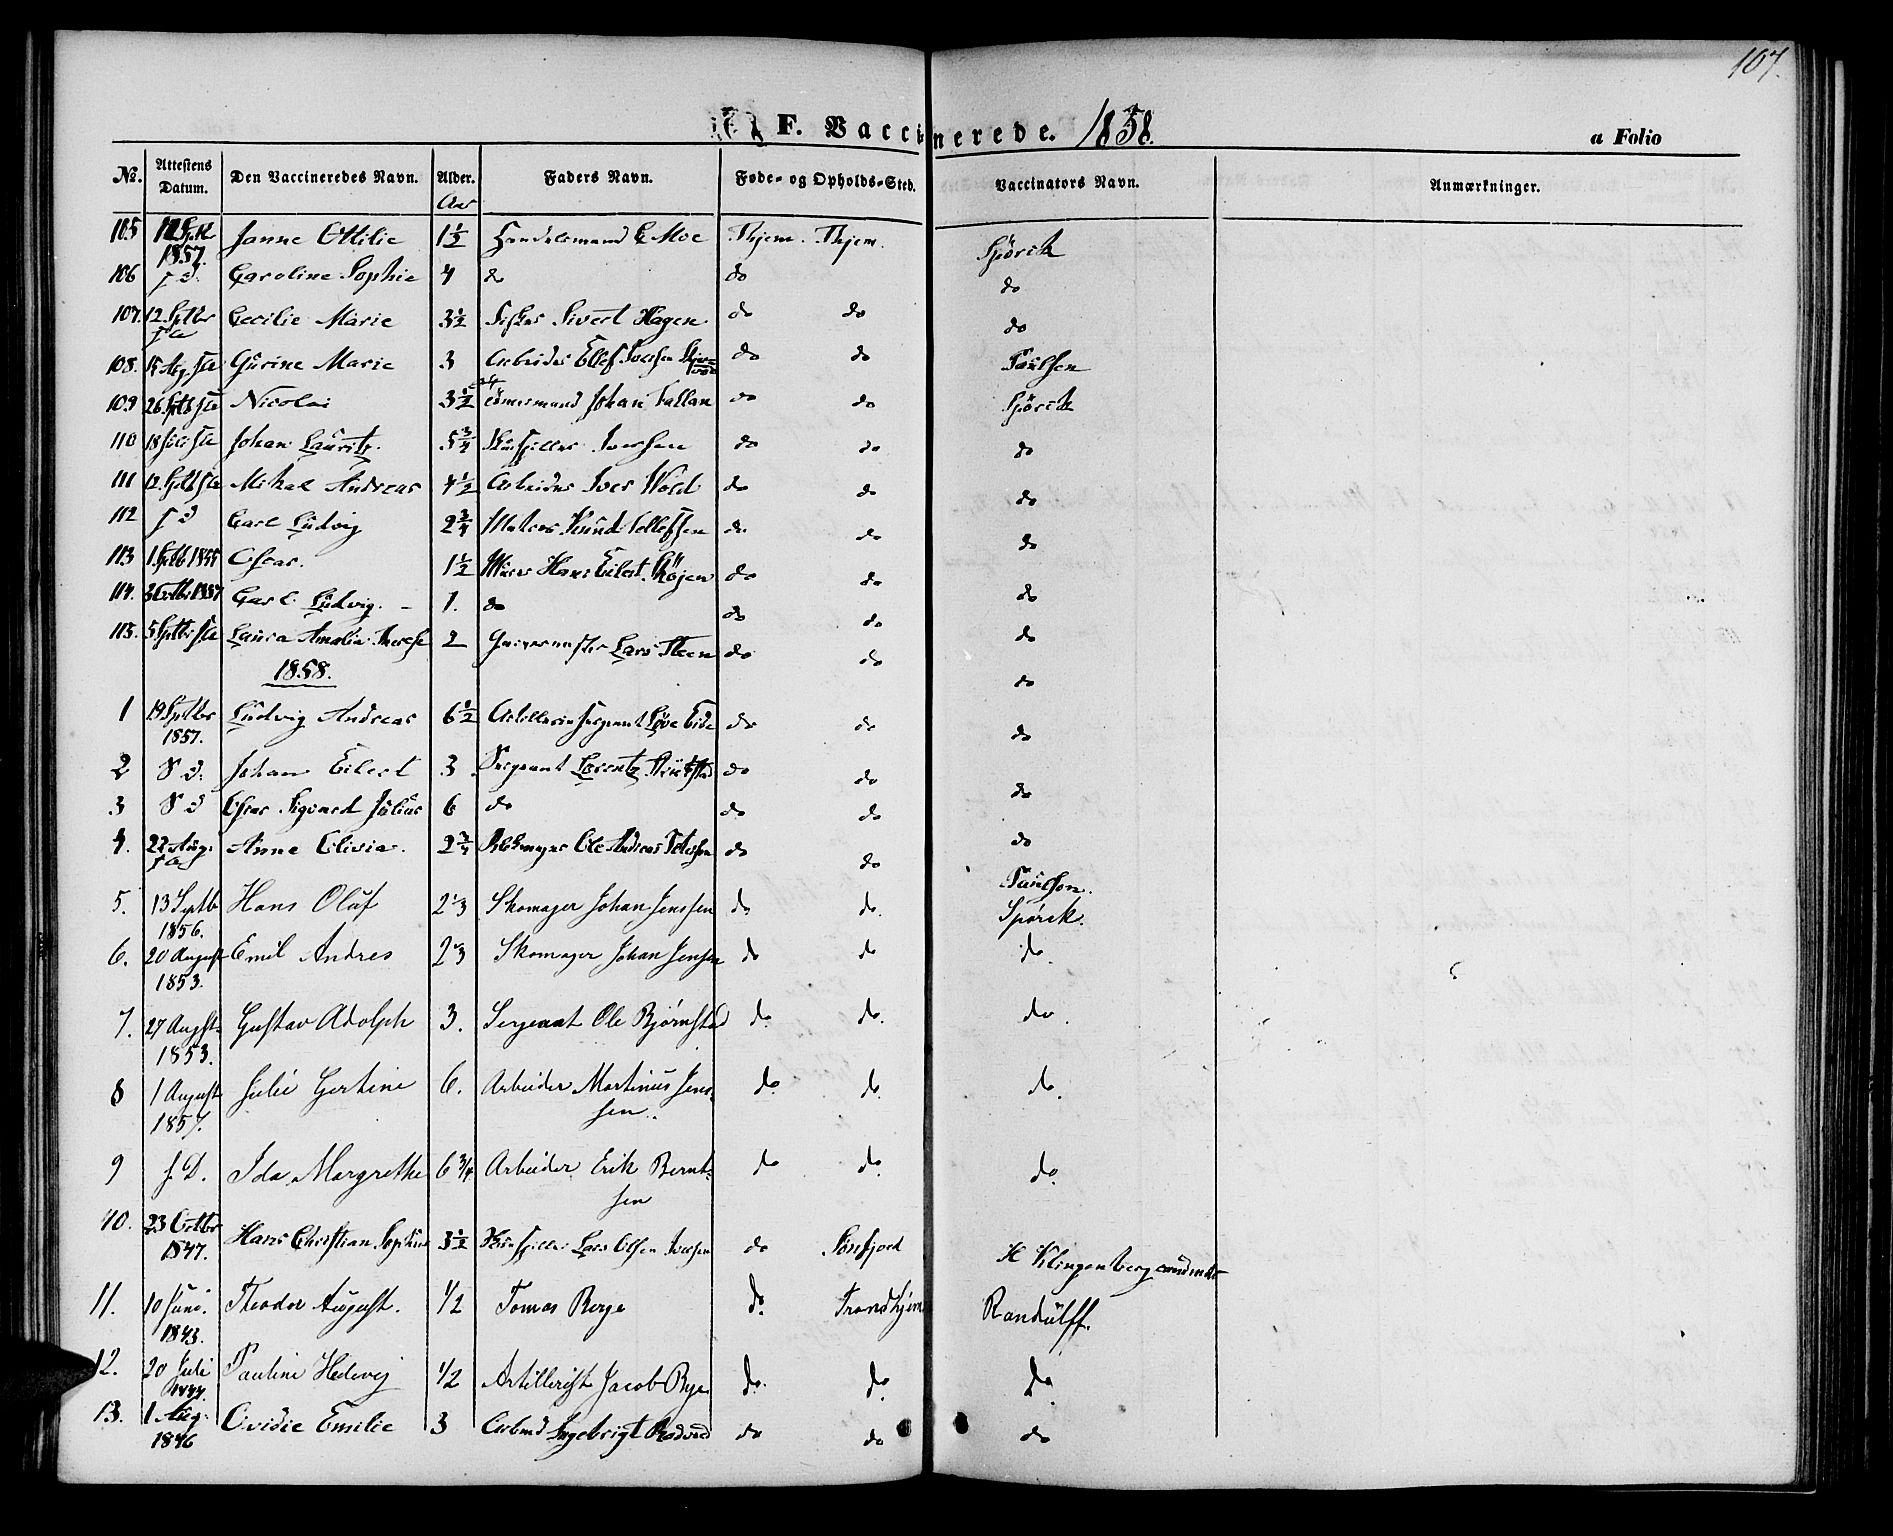 107.
F. Vaccinerede. 1858.
a Folio
No. Attestens Datum. Den Vaccineredes Navn. Alder. Faders Navn. Føde- og Opholds-Sted. Vaccinators Navn. Anmærkninger.
Aar
105 12 Sptb 1857. Janne Ottilie 1½ Handelsmand E Moe Thjem. Thjem. Spörck
106 s D. Caroline Sophie 4 do do do
107. 12 Septbr s A Cecilie Marie 3½ Fisker Sivert Hagen do do do
108. 15 Aug. s A Gurine Marie 3 Arbeider Ellef Iversen do do Paulsen
109 26 Sptb s A Nicolai 3½ Johan Fallan do do Spörck
110 18 s A Johan Lauritz. 5¾ Iversen do do do
111 12 Sptb s A Mikal Andreas 4½ Arbeider Iver Wold do do do
112 s D Carl Ludvig 2¾ Matros Knud Tellefsen do do do
113 1 Sptb 1855 Oscar. 1½ Murer Hans Eilert Röjen do do do
114. 3 Octbr 1857 Carl Ludvig. 1. do do do do
115. 5 Sptbr s A Laura Amalia Therese 2 Lars Steen do do do
1858.
1 19 Septbr 1857. Ludvig Andreas 6½ Artillerie Sergeant Löve Eide do do do
2 S D. Johan Eilert 3 Sergeant Lorentz do do do
3 S D Oscar Sigvard Julius 6 do do do do
4. 22 Aug. s A Anne Olivia. 2¾ Ole Andreas Petersen do do Paulson.
5. 13 Septb 1856. Hans Oluf 2⅓ Skomager Johan Jenssen do do. Spörck.
6. 20 August 1853. Emil Andres 2⅓ Skomager Johan Jensen do do do.
7. 27 Augst. 1853. Gustav Adolph 3. Sergeant Ole Bjørnstad do. do. do.
8 1 August 1857. Julie Gertine 6. Arbeider Martinus Jens-
sen. do. do. do.
9 s. D. Ida Margrethe 6 3/4 Arbeider Erik Bernt-
sen do do. do.
10. 23 Octbr 1847. Hans Christian Sophus 3½ Lars Olsen Iversen do Sönfjord H Klingenberg
11. 10 Juni. 1843. Theodor August. 1/2 Tomas Berge do. Trondhjem Randulff.
12. 20 Juli 1844. Pauline Hedevig 1/2 Artillerist Jacob Bye do. do. do
13. 1 Aug: 1846 Ovidie Emilie 3 Arbeid Ingebrigt Rodved do do do